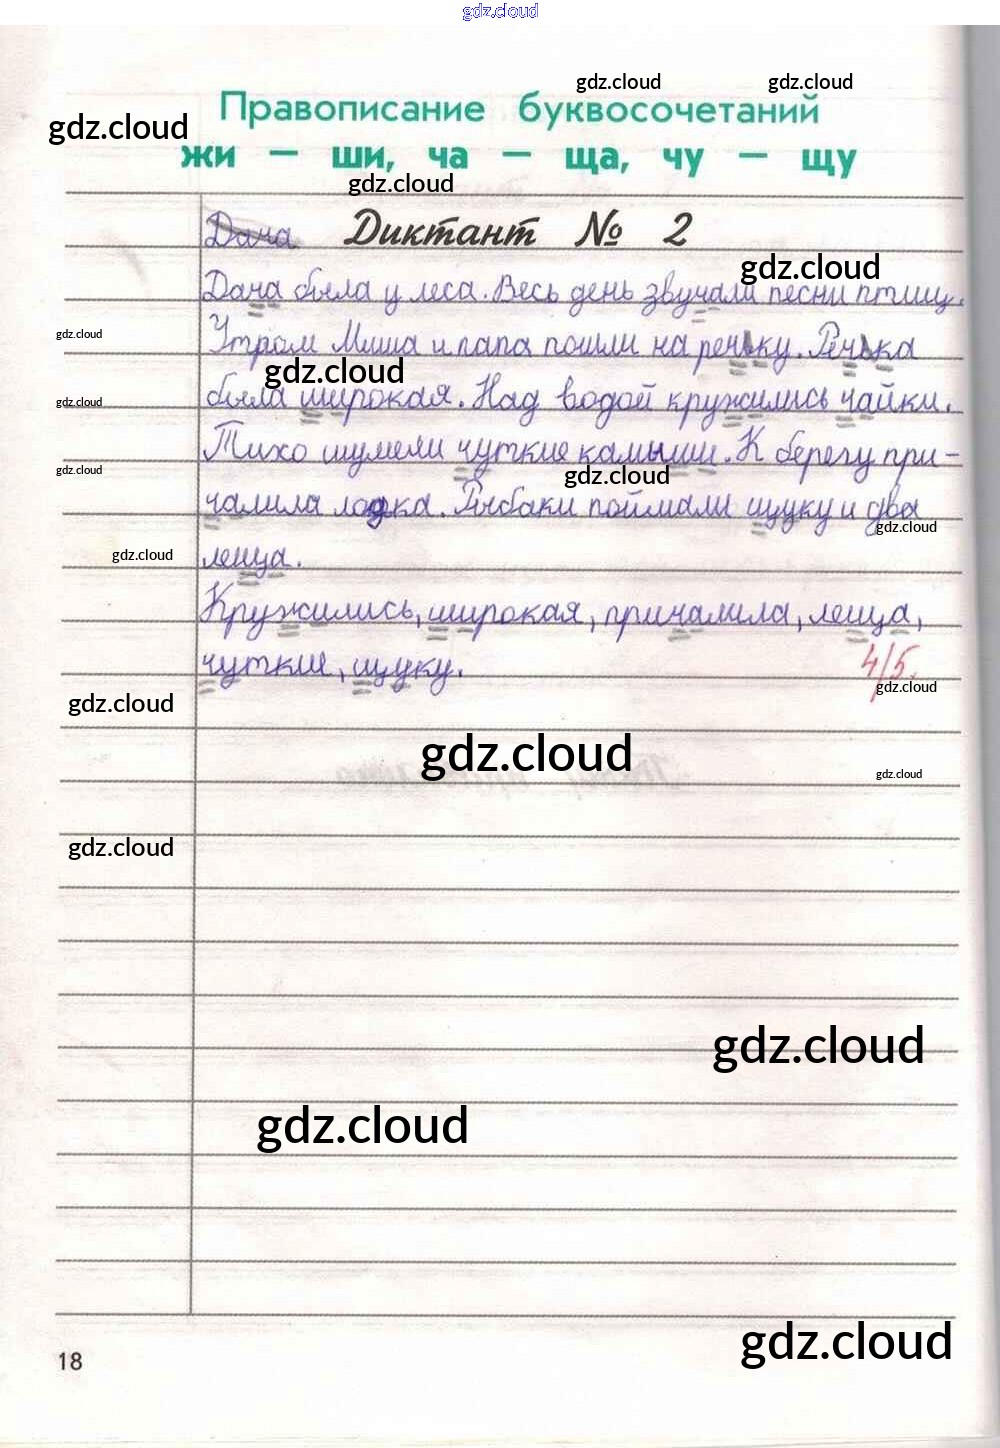 gdz.cloud
gdz.cloud gdz.cloud
Правописание буквосочетаний
gdz.cloud
жи – ши, ча – ща, чу – щу
gdz.cloud
Дача Диктант № 2
gdz.cloud
Дача была у леса. Весь день звучали песни птиц.
gdz.cloud
Утром Миша и папа пошли на речку. Речка
gdz.cloud
gdz.cloud
была широкая. Над водой кружились чайки.
Тихо шумели чуткие камыши. К берегу при-
gdz.cloud
gdz.cloud
чалила лодка. Рыбаки поймали щуку и два
gdz.cloud
gdz.cloud
леща.
Кружились, широкая, причалила, леща,
чуткие, щуку.
4/5.
gdz.cloud
gdz.cloud
gdz.cloud
gdz.cloud
gdz.cloud
gdz.cloud
gdz.cloud
gdz.cloud
18